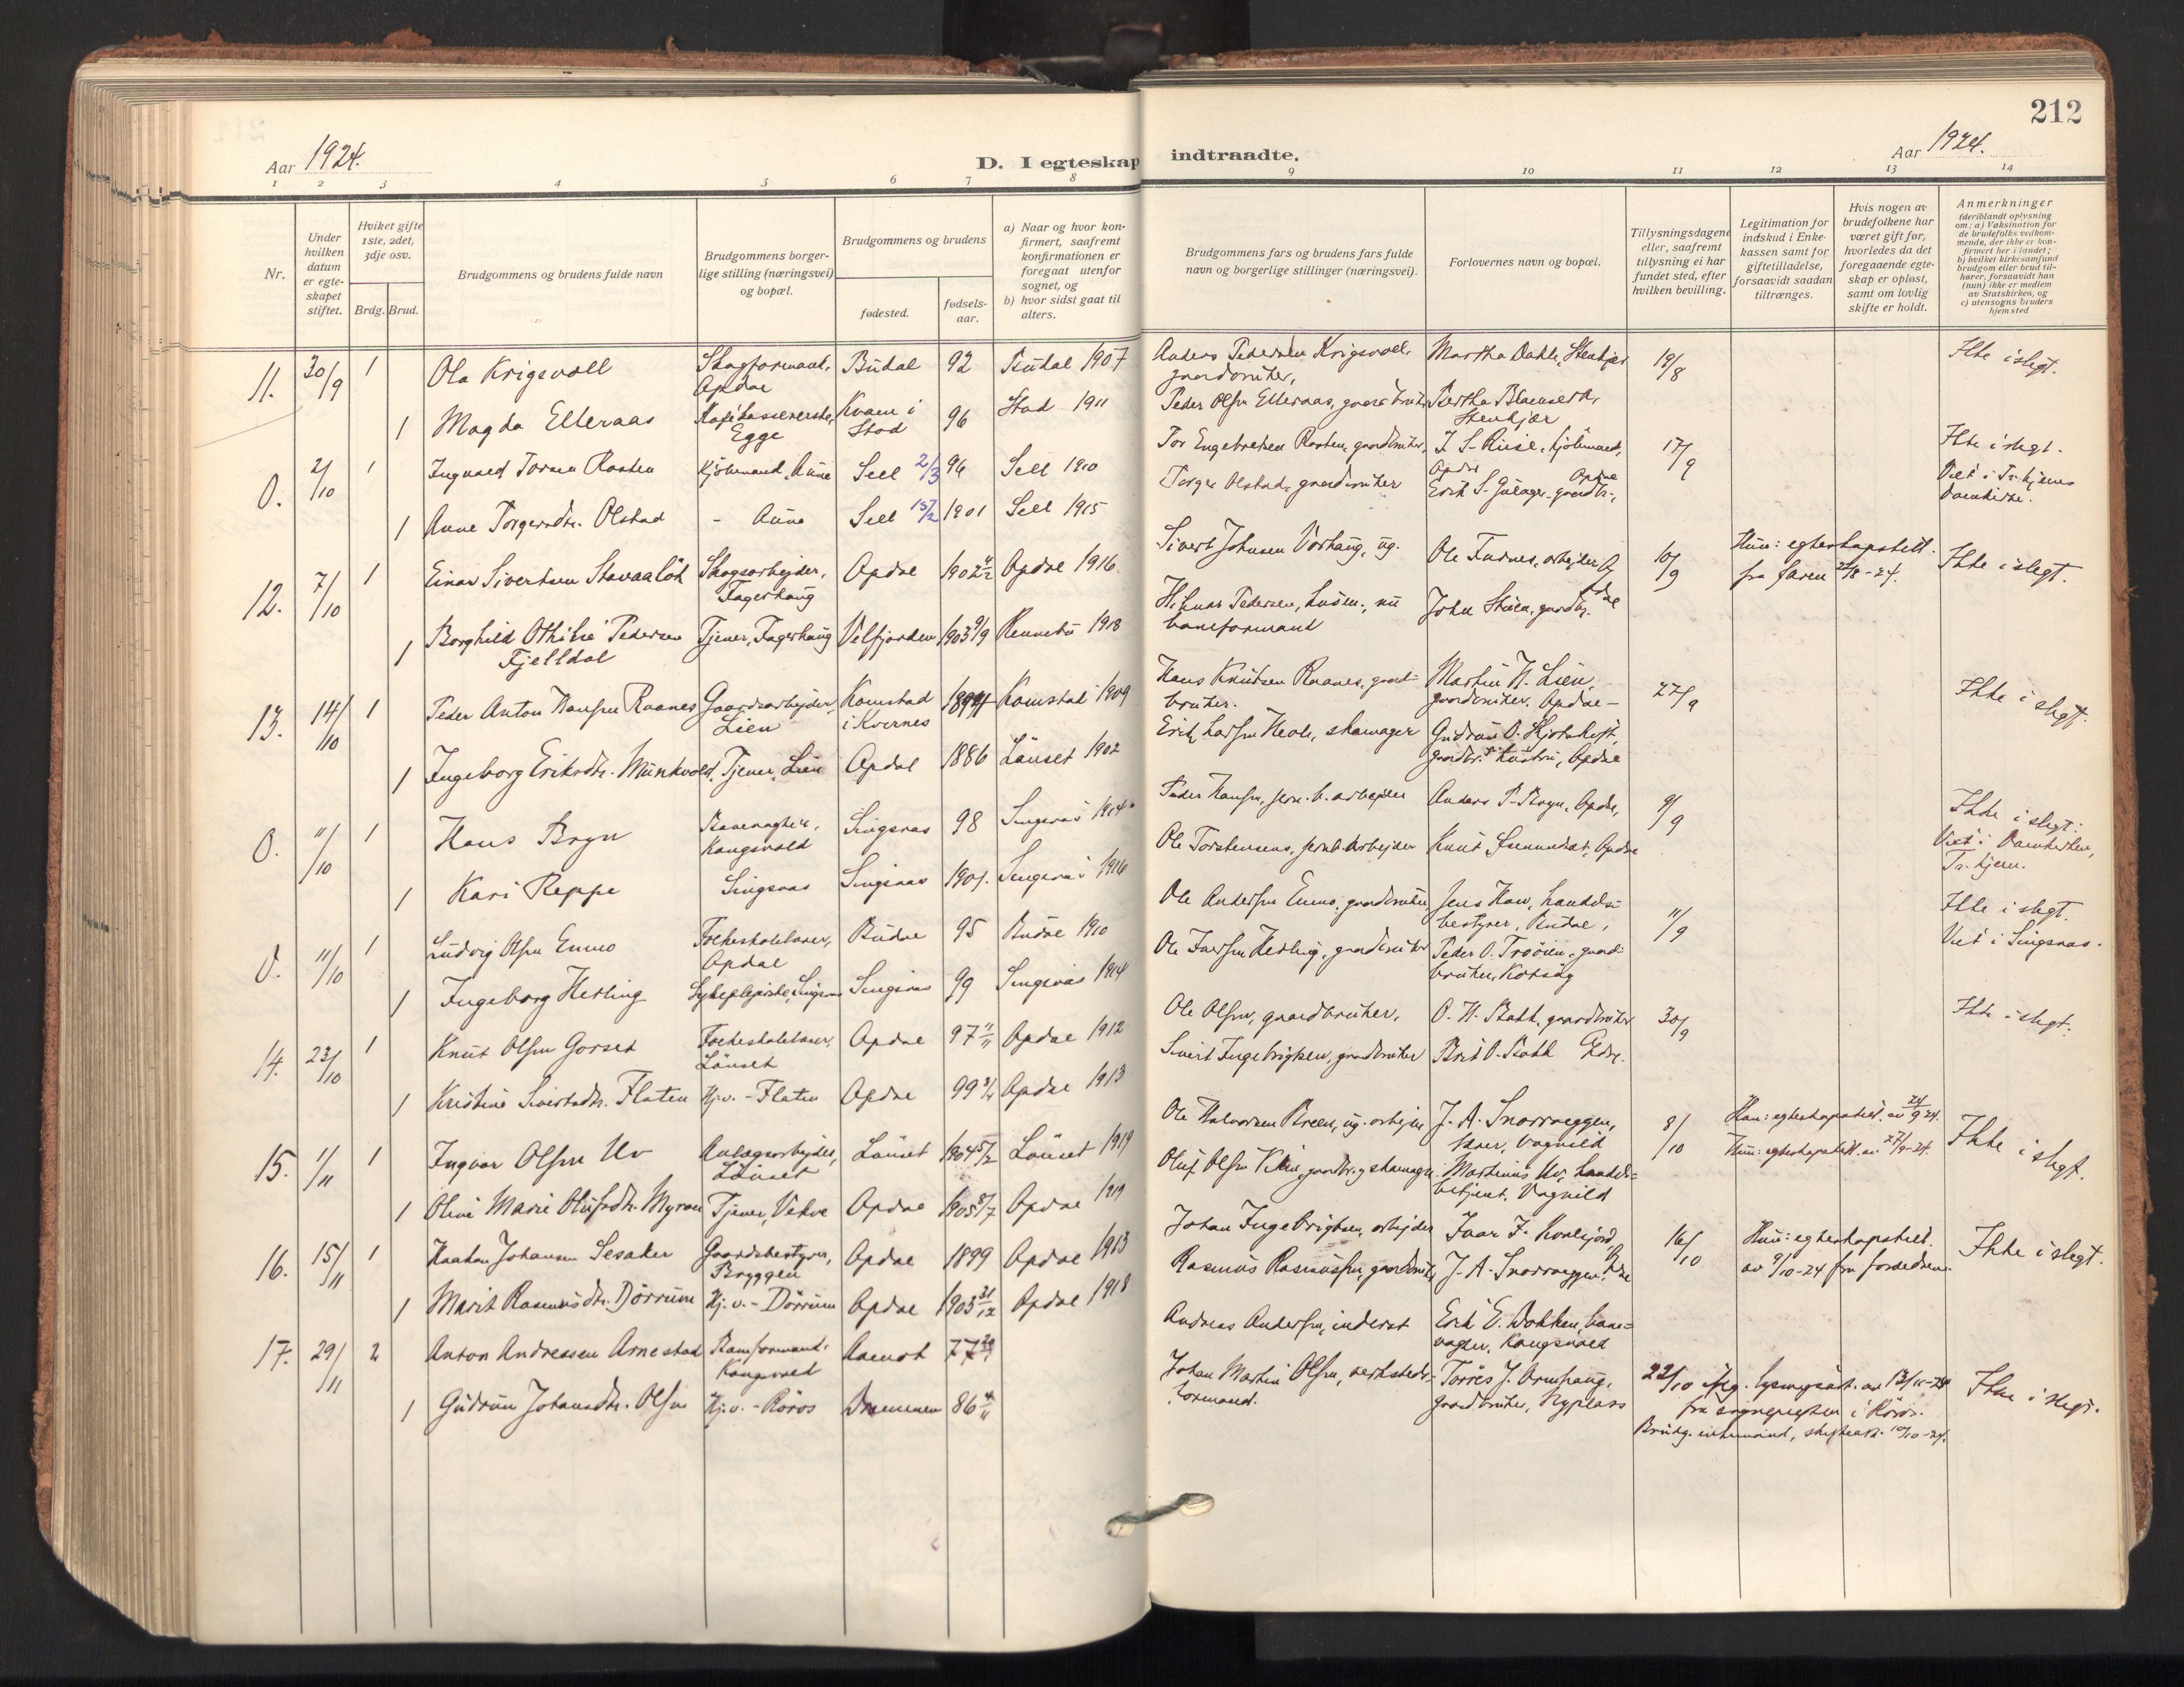 212
Aar 1924.
D. I egteskap indtraadte.
Aar 1924.
1 2 3 4 5 6 7 8 9 10 11 12 13 14
Nr.
Under hvilken datum er egteskapet stiftet.
Hviket gifte 1ste, 2det, 3dje osv.
Brdg. Brud.
Brudgommens og brudens fulde navn
Brudgommens borgerlige stilling (næringsvei) og bopæl.
Brudgommens og brudens
fødested.
fødselsaar.
a) Naar og hvor konfirmert, saafremt konfirmationen er foregaat utenfor sognet, og
b) hvor sidst gaat til alters.
Brudgommens fars og brudens fars fulde navn og borgerlige stillinger (næringsvei).
Forlovernes navn og bopæl.
Tillysningsdagene eller, saafremt tillysning ei har fundet sted, efter hvilken bevilling.
Legitimation for indskud i Enkekassen samt for giftetilladelse, forsaavidt saadan tiltrænges.
Hvis nogen av brudefolkene har været gift før, hvorledes da det foregaaende egteskap er opløst, samt om lovlig skifte er holdt.
Anmerkninger
(deriblandt oplysning om: a) Vaksination for de brudefolks vedkommende, der ikke er konfirmert her i landet; b) hvilket kirkesamfund brudgom eller brud tilhører, forsaavidt han (hun) ikke er medlem av Statskirken, og c) utensogns bruders hjemsted
11. 20/9 1 Ola Krigsvoll Skogformand, Opdal Budal 92 Budal 1907 Anders Pedersen Krigsvoll, gaardbruker, Martha Dahle, Stenkjær 19/8 Ikke i slegt.
1 Magda Elleraas Egge Kvam i Stod 96 Stod 1911 Peder Olsen Elleraas, gaardbruker Stenkjær
O. 2/10 1 Ingvald Torsen Rasten Kjøbmand, Aune Sell 2/3 96 Sell 1910 Tor Engebretsen Rasten, gaardbruker, I. S. Kiise, kjøbmand, Opdal 17/9 Ikke i slegt. Viet i Tr.hjems Domkirke.
1 Anne Torgersdtr. Olstad - Aune Sell 15/2 1901 Sell 1915 Torger Olstad, gaardbruker Erik S. Gulager, gaardbr., Opdal
12. 7/10 1 Einar Sivertsen Stavaaløk Skogsarbejder, Fagerhaug Opdal 1902 Opdal 1916 Sivert Johnsen Vorhaug, ug. Ole Furnes, arbejder, Opdal 10/9 Hun: egteskapstill. fra faren 24/8-24. Ikke i slegt.
1 Borghild Othilie Pedersen Fjelldal Tjener, Fagerhaug Velfjorden 1903 9/9 Rennebu 1918 Hilmar Pedersen, nu baneformand John Stuen, gaardbr.
13. 14/10 1 Peder Anton Hansen Raanes Gaardsarbejder, Lien Kornstad i Kvernes 1894 Kornstad 1909 Hans Knudsen Raanes, gaardbruker. Martin H. Lien, gaardbruker, Opdal - 27/9 Ikke i slegt.
1 Ingeborg Eriksdtr. Munkvold Tjener, Lien Opdal 1886 Lønset 1902 Erik Larsen Heale, skomager Gudrun O. Hjorthuft, gaardbr. hustru, Opdal
O. 11/10 1 Hans Bryn Banevogter, Kongsvold Singsaas 98 Singsaas 1914 Peder Hansen, jern.b.arbejder Anders P. Bryn, Opdal, 9/9 Ikke i slegt. Viet i Domkirken, Tr.hjem.
1 Kari Reppe Singsaas Singsaas 1901. Singsaas 1916 Ole Torstensens, jernb.arbejder Knut Opdal
O. 11/10 1 Ludvig Olsen Enmo Folkeskolelærer, Opdal Budal 95 Budal 1910 Ole Andersen Enmo, gaardbruker, Jens Haw, handelsbestyrer, Budal, 11/9 Ikke i slegt. Viet i Singsaas.
1 Ingeborg Hetling Sykepleierske, Singsaas Singsaas 99 Singsaas 1914 Ole Iversen Hetling, gaardbruker Peder O. Trøøien, gaardbruker, Kotsøy
14. 23/10 1 Knut Olsen Gorset Folkeskolelærer, Lønset Opdal 97 11/11 Opdal 1912 Ole Olsen, gaardbruker, O. H. Stokk, gaardbruker 30/9 Ikke i slegt.
1 Kristine Sivertsdtr. Flaten Hj.v. - Flaten Opdal 99 Opdal 1913 Sivert Ingebrigtsen, gaardbruker Brit O. Stokk Opdal.
15. 1/11 1 Ingvar Olsen Uv Anlægsarbejder, Lønset Lønset 1904 5/2 Lønset 1919 Ole Halvorsen Breen, ug. arbejder J. A. Snorroeggen, lærer, Vognild 8/10 Han: egteskapstill. av 24/9 24. Hun: egteskapstill. av 27/9-24. Ikke i slegt.
1 Oline Marie Olufsdtr. Myran Tjener, Vekve Opdal 1905 8/7 Opdal 1919 Oluf Olsen gaardbr. og skomager Martinus Uv, handelsbetjent, Vognild
16. 15/11 1 Haakon Johansen Sesaker Gaardsbestyrer, Bryggen Opdal 1899 Opdal 1913 Johan Ingebrigtsen, arbejder Ivar J. 16/10 Hun: egteskapstill. av 9/10-24 fra forældrene. Ikke i slegt.
1 Marit Rasmusdtr. Dørrum Hj.v. - Dørrum Opdal 1903 31/12 Opdal 1918 Rasmus Rasmussen, gaardbruker J. A. Snorroeggen, Opdal
17. 29/11 2 Anton Andreassen Arnestad Baneformand, Kongsvold Aamot 77 Andreas Andersen, inderst Erik E. Dokken, banevogter, Kongsvold
1 Gudrun Johansdtr. Olsen Hj.v. - Røros Drammen 86 4/11 Johan Martin Olsen, verkstedsformand. Tørres J. Ormhaug, gaardbruker, Nyplass 22/10 lysningsatt. av 13/11-24 fra sognepresten i Røros. Ikke i slegt.
Brudg. enkemand, skifteatt. 10/10-24.